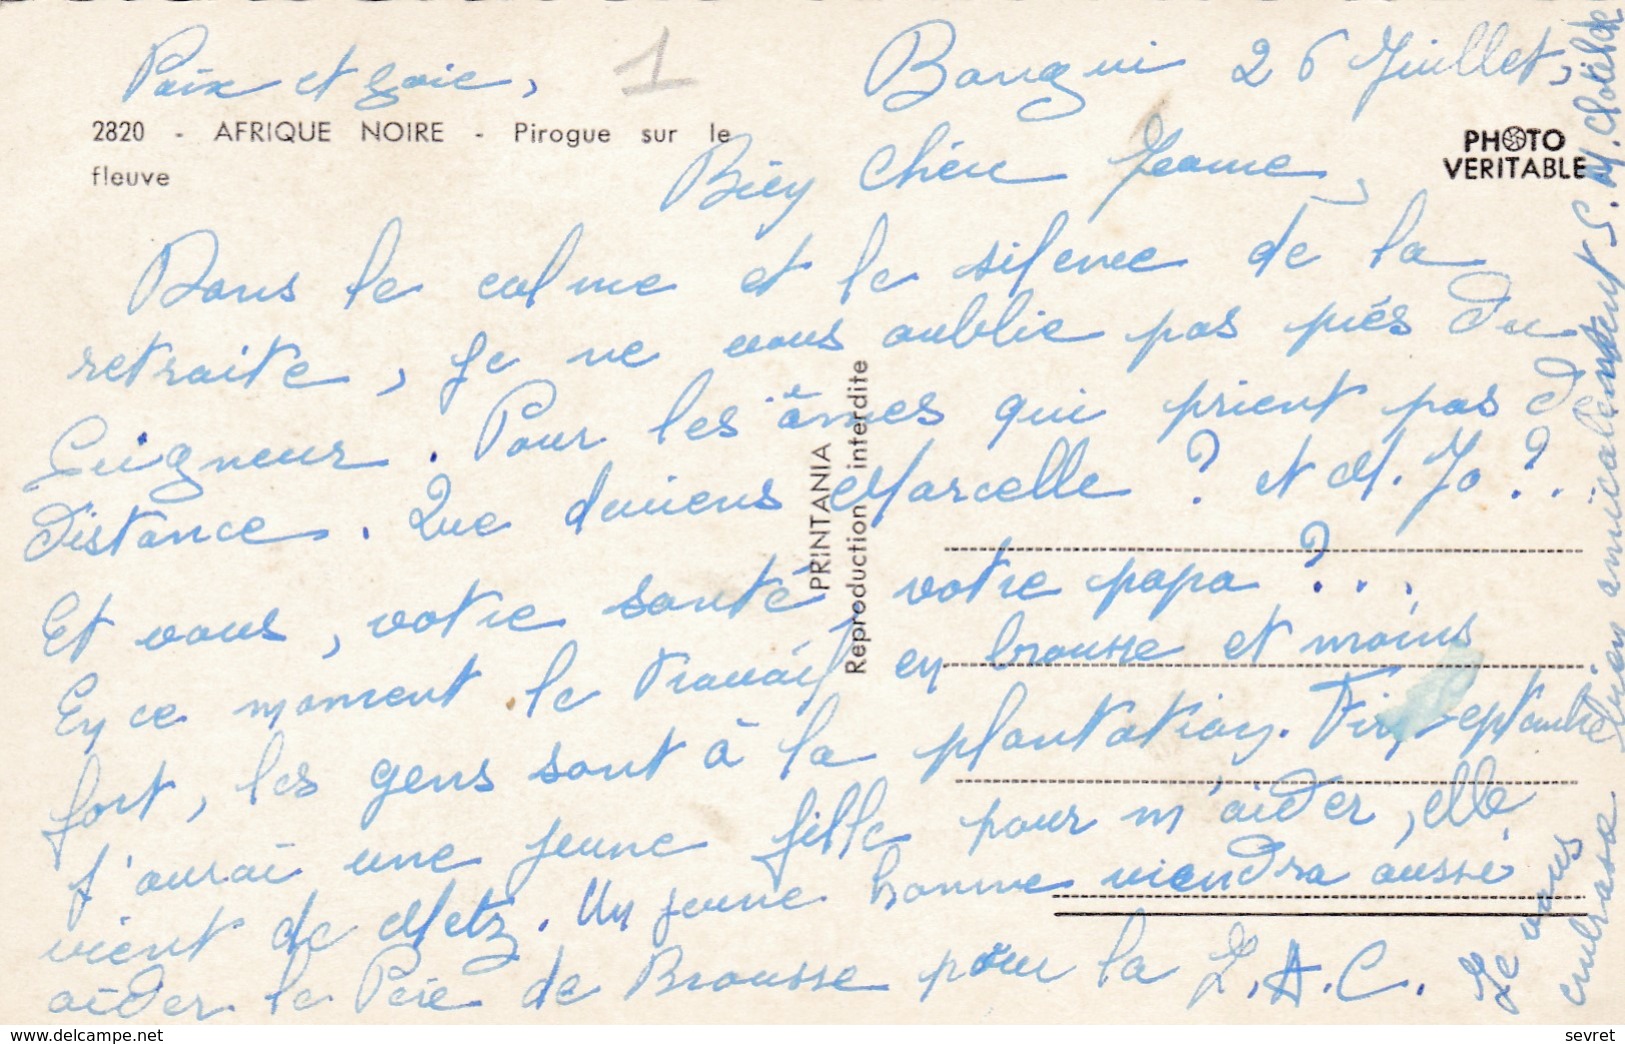 Paix et Joie,
1
Bangui 26 Juillet,
2820 - AFRIQUE NOIRE - Pirogue sur le
fleuve
PHOTO
VERITABLE
Bien chère Jeanne,
Dans le calme et le silence de la
retraite, je ne vous oublie pas près du
Seigneur. Pour les âmes qui prient pas de
distance. Que devient Marcelle ? et M. Jo ?.
Et vous, votre santé votre papa ?...
En ce moment le travail en brousse est moins
fort, les gens sont à la plantation. Fin Septembre
j'aurai une jeune fille pour m'aider, elle
vient de Metz. Un jeune homme viendra aussi
aider le Père de Brousse pour la J.A.C. Je vous
embrasse bien amicalement S. M. Clotilde
PRINTANIA
Reproduction interdite
delcampe.net
sevret